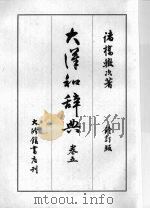 諸橋轍次著
修訂版
大漢和辞典
巻五
大修館書店刊